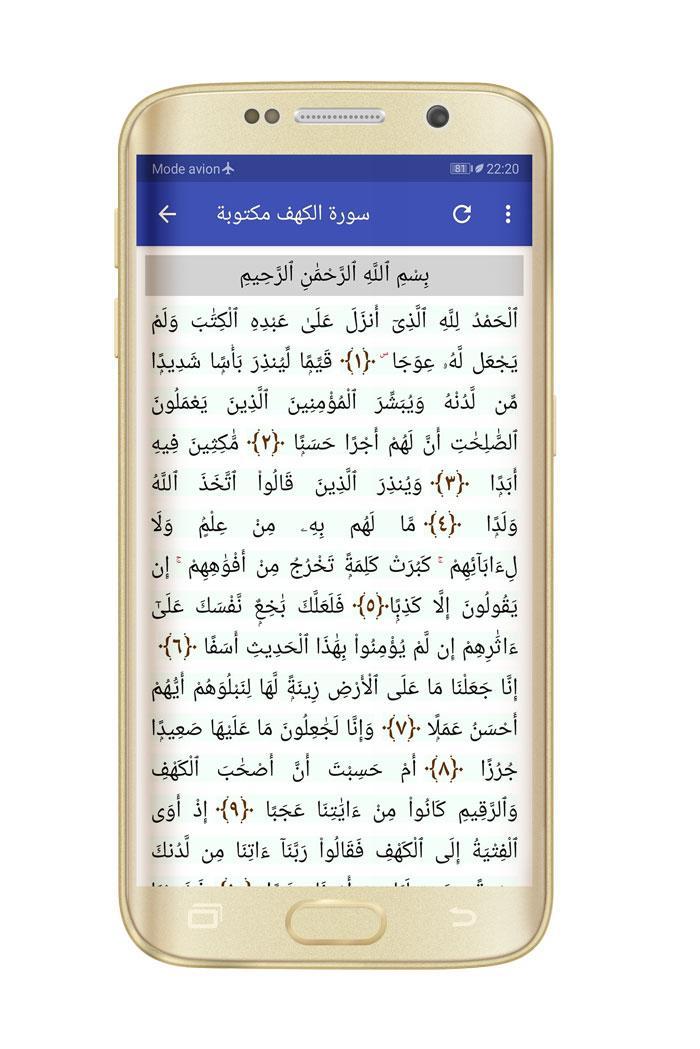 Mode avion
81 22:20
سورة الكهف مكتوبة
بِسْمِ ٱللَّهِ ٱلرَّحْمَٰنِ ٱلرَّحِيمِ
ٱلْحَمْدُ لِلَّهِ ٱلَّذِىٓ أَنزَلَ عَلَىٰ عَبْدِهِ ٱلْكِتَٰبَ وَلَمْ
يَجْعَل لَّهُۥ عِوَجَا ۜ ﴿١﴾ قَيِّمًا لِّيُنذِرَ بَأْسًا شَدِيدًا
مِّن لَّدُنْهُ وَيُبَشِّرَ ٱلْمُؤْمِنِينَ ٱلَّذِينَ يَعْمَلُونَ
ٱلصَّٰلِحَٰتِ أَنَّ لَهُمْ أَجْرًا حَسَنًا ﴿٢﴾ مَّٰكِثِينَ فِيهِ
أَبَدًا ﴿٣﴾ وَيُنذِرَ ٱلَّذِينَ قَالُوا۟ ٱتَّخَذَ ٱللَّهُ
وَلَدًا ﴿٤﴾ مَّا لَهُم بِهِۦ مِنْ عِلْمٍ وَلَا
لِءَابَآئِهِمْ ۚ كَبُرَتْ كَلِمَةً تَخْرُجُ مِنْ أَفْوَٰهِهِمْ ۚ إِن
يَقُولُونَ إِلَّا كَذِبًا ﴿٥﴾ فَلَعَلَّكَ بَٰخِعٌ نَّفْسَكَ عَلَىٰٓ
ءَاثَٰرِهِمْ إِن لَّمْ يُؤْمِنُوا۟ بِهَٰذَا ٱلْحَدِيثِ أَسَفًا ﴿٦﴾
إِنَّا جَعَلْنَا مَا عَلَى ٱلْأَرْضِ زِينَةً لَّهَا لِنَبْلُوَهُمْ أَيُّهُمْ
أَحْسَنُ عَمَلًا ﴿٧﴾ وَإِنَّا لَجَٰعِلُونَ مَا عَلَيْهَا صَعِيدًا
جُرُزًا ﴿٨﴾ أَمْ حَسِبْتَ أَنَّ أَصْحَٰبَ ٱلْكَهْفِ
وَٱلرَّقِيمِ كَانُوا۟ مِنْ ءَايَٰتِنَا عَجَبًا ﴿٩﴾ إِذْ أَوَى
ٱلْفِتْيَةُ إِلَى ٱلْكَهْفِ فَقَالُوا۟ رَبَّنَآ ءَاتِنَا مِن لَّدُنكَ